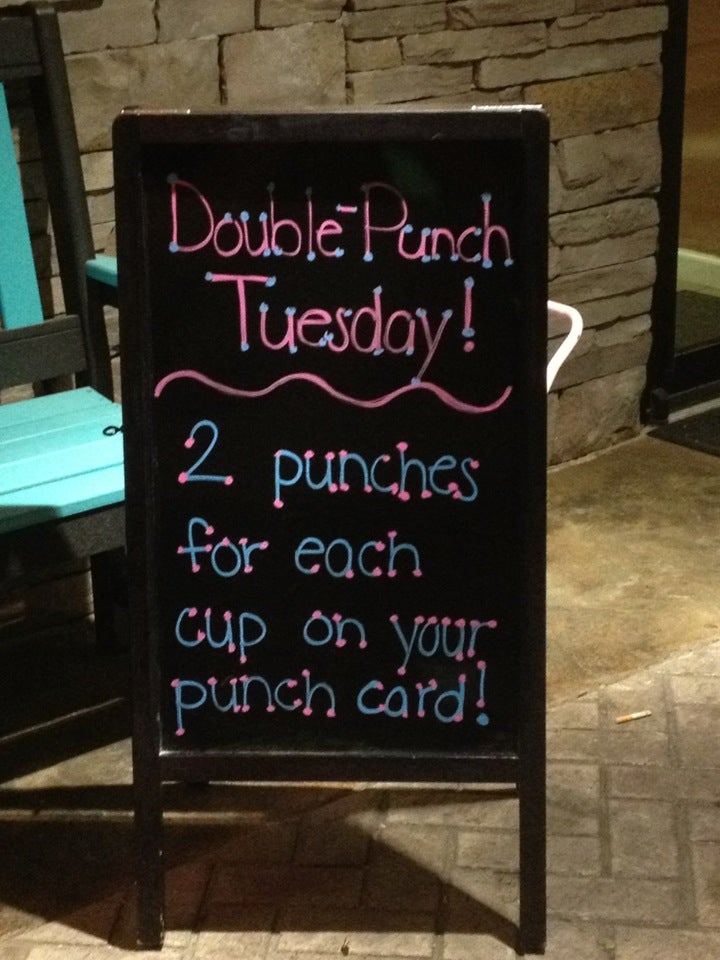 Double-Punch
Tuesday!
2 punches
for each
cup on your
punch card!